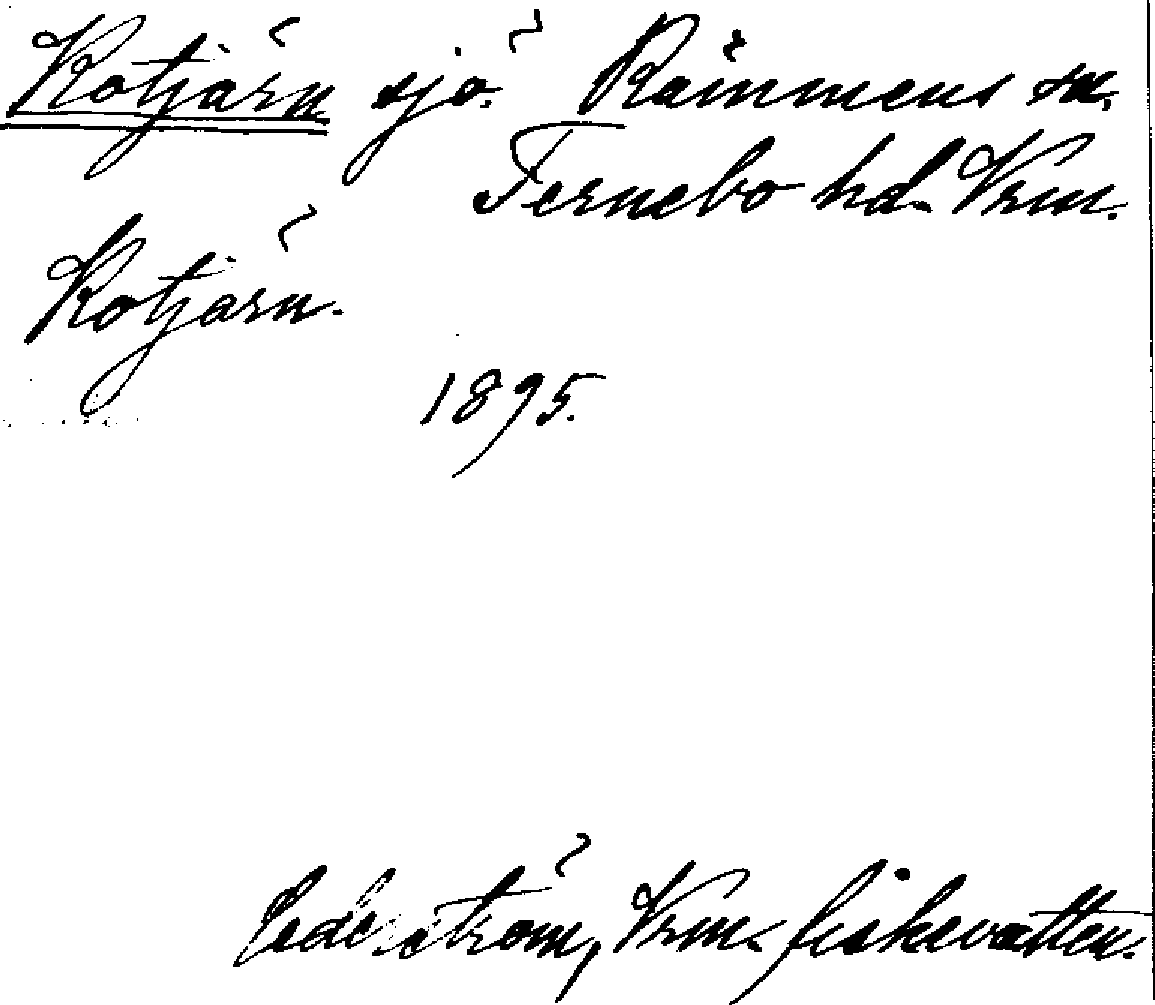 Kotjärn sjö. Rämmens sn.
Fernebo hd. Vrm.
Kotjärn.
1895.
Cederström, Vrm:s fiskevatten.